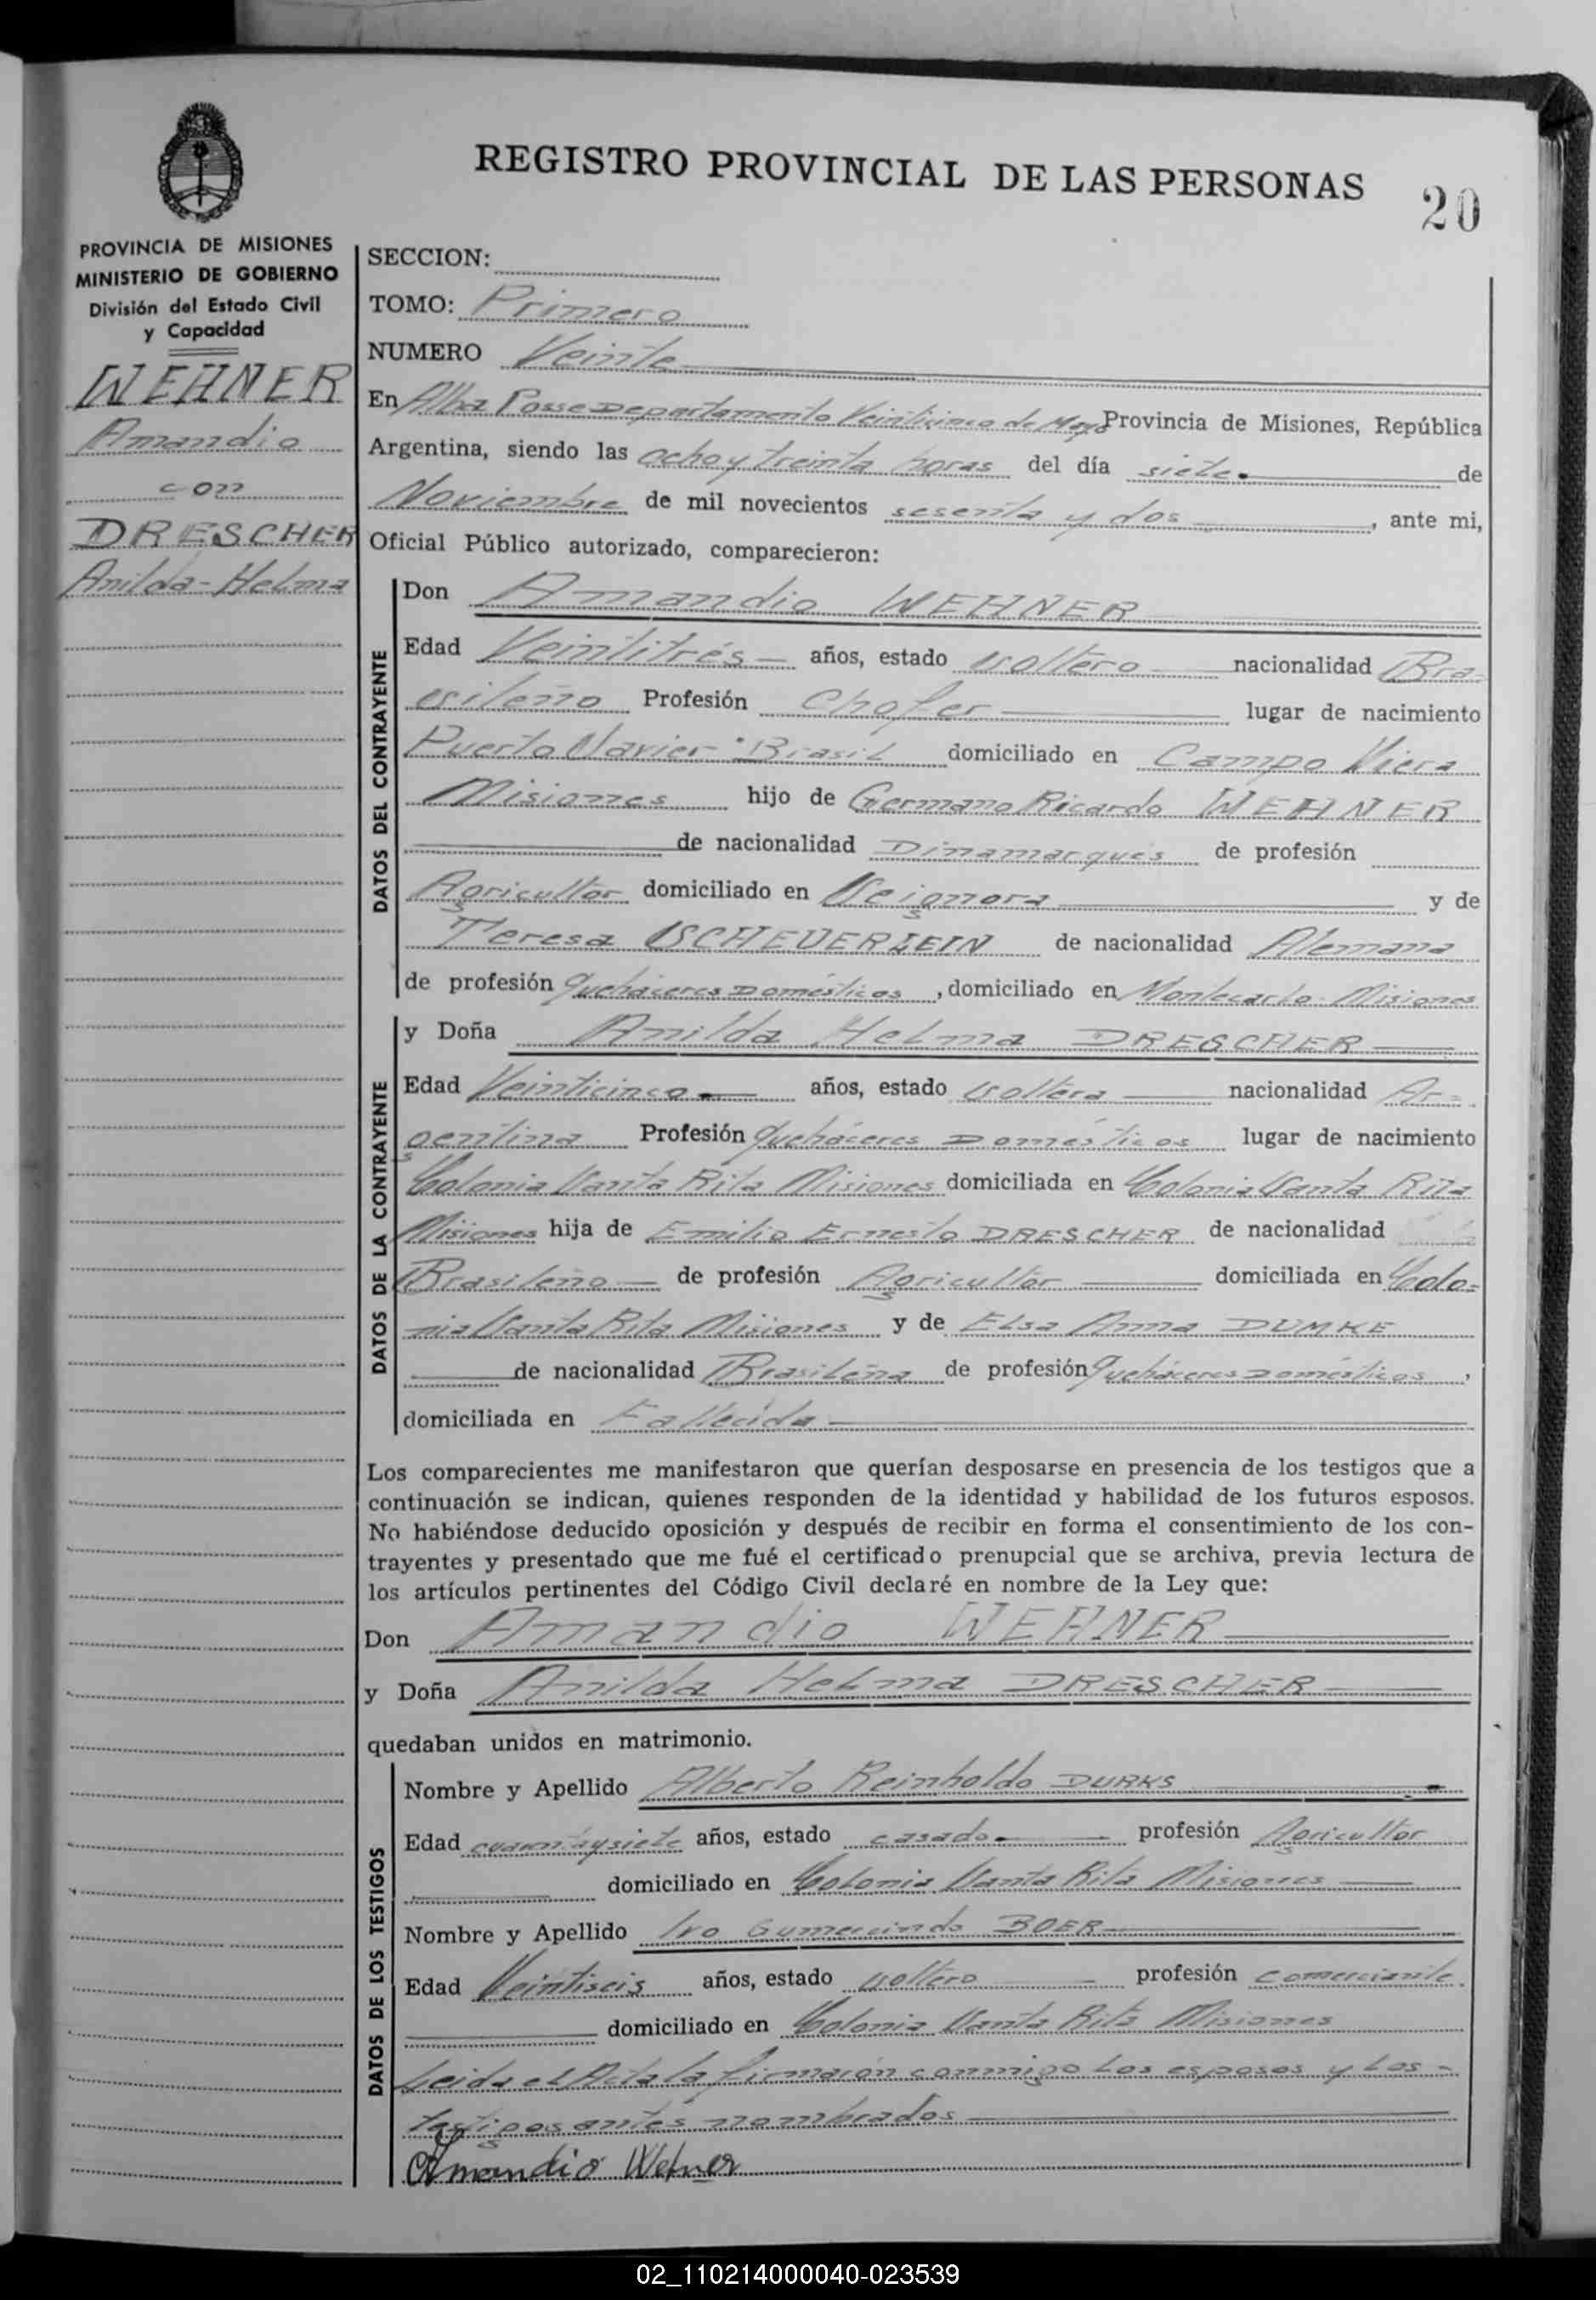 REGISTRO PROVINCIAL DE LAS PERSONAS
20
PROVINCIA DE MISIONES
MINISTERIO DE GOBIERNO
División del Estado Civil
y Capacidad
WEHNER
Amandio
con
DRESCHER
Anilda-Helma
SECCION:
TOMO: Primero
NUMERO Veinte
En Alba Posse Departamento Veinticinco de Mayo Provincia de Misiones, República
Argentina, siendo las ocho y treinta horas del día siete de
Noviembre de mil novecientos sesenta y dos, ante mi,
Oficial Público autorizado, comparecieron:
DATOS DEL CONTRAYENTE
Don Amandio WEHNER
Edad Veintitrés años, estado soltero nacionalidad Bra-
sileño Profesión Chofer lugar de nacimiento
Puerto Brasil domiciliado en Campo Viera
Misiones hijo de Germano Ricardo WEHNER
de nacionalidad Dinamarqués de profesión
Agricultor domiciliado en Se ignora y de
Teresa SCHEUERLEIN de nacionalidad Alemana
de profesión Quehaceres Domésticos, domiciliado en Montecarlo Misiones
DATOS DE LA CONTRAYENTE
y Doña Anilda Helma DRESCHER
Edad Veinticinco años, estado soltera nacionalidad Ar-
gentina Profesión Quehaceres Domésticos lugar de nacimiento
Colonia Santa Rita Misiones domiciliada en Colonia Santa Rita
Misiones hija de Emilio Ernesto DRESCHER de nacionalidad
Brasileño de profesión Agricultor domiciliada en Colo-
nia Santa Rita Misiones y de Elsa Anna DUMKE
de nacionalidad Brasileña de profesión Quehaceres Domésticos,
domiciliada en Fallecida
Los comparecientes me manifestaron que querían desposarse en presencia de los testigos que a
continuación se indican, quienes responden de la identidad y habilidad de los futuros esposos.
No habiéndose deducido oposición y después de recibir en forma el consentimiento de los con-
trayentes y presentado que me fué el certificado prenupcial que se archiva, previa lectura de
los artículos pertinentes del Código Civil declaré en nombre de la Ley que:
Don Amandio WEHNER
y Doña Anilda Helma DRESCHER
quedaban unidos en matrimonio.
DATOS DE LOS TESTIGOS
Nombre y Apellido Alberto Reinholdo DURKS
Edad cuarentaysiete años, estado casado profesión Agricultor
domiciliado en Colonia Santa Rita Misiones
Nombre y Apellido Ivo Gumercindo BOER
Edad Veintiseis años, estado soltero profesión comerciante
domiciliado en Colonia Santa Rita Misiones
Leida el Acta la firmaron conmigo los esposos y los
testigos antes nombrados
Amandio Wehner
02_110214000040-023539